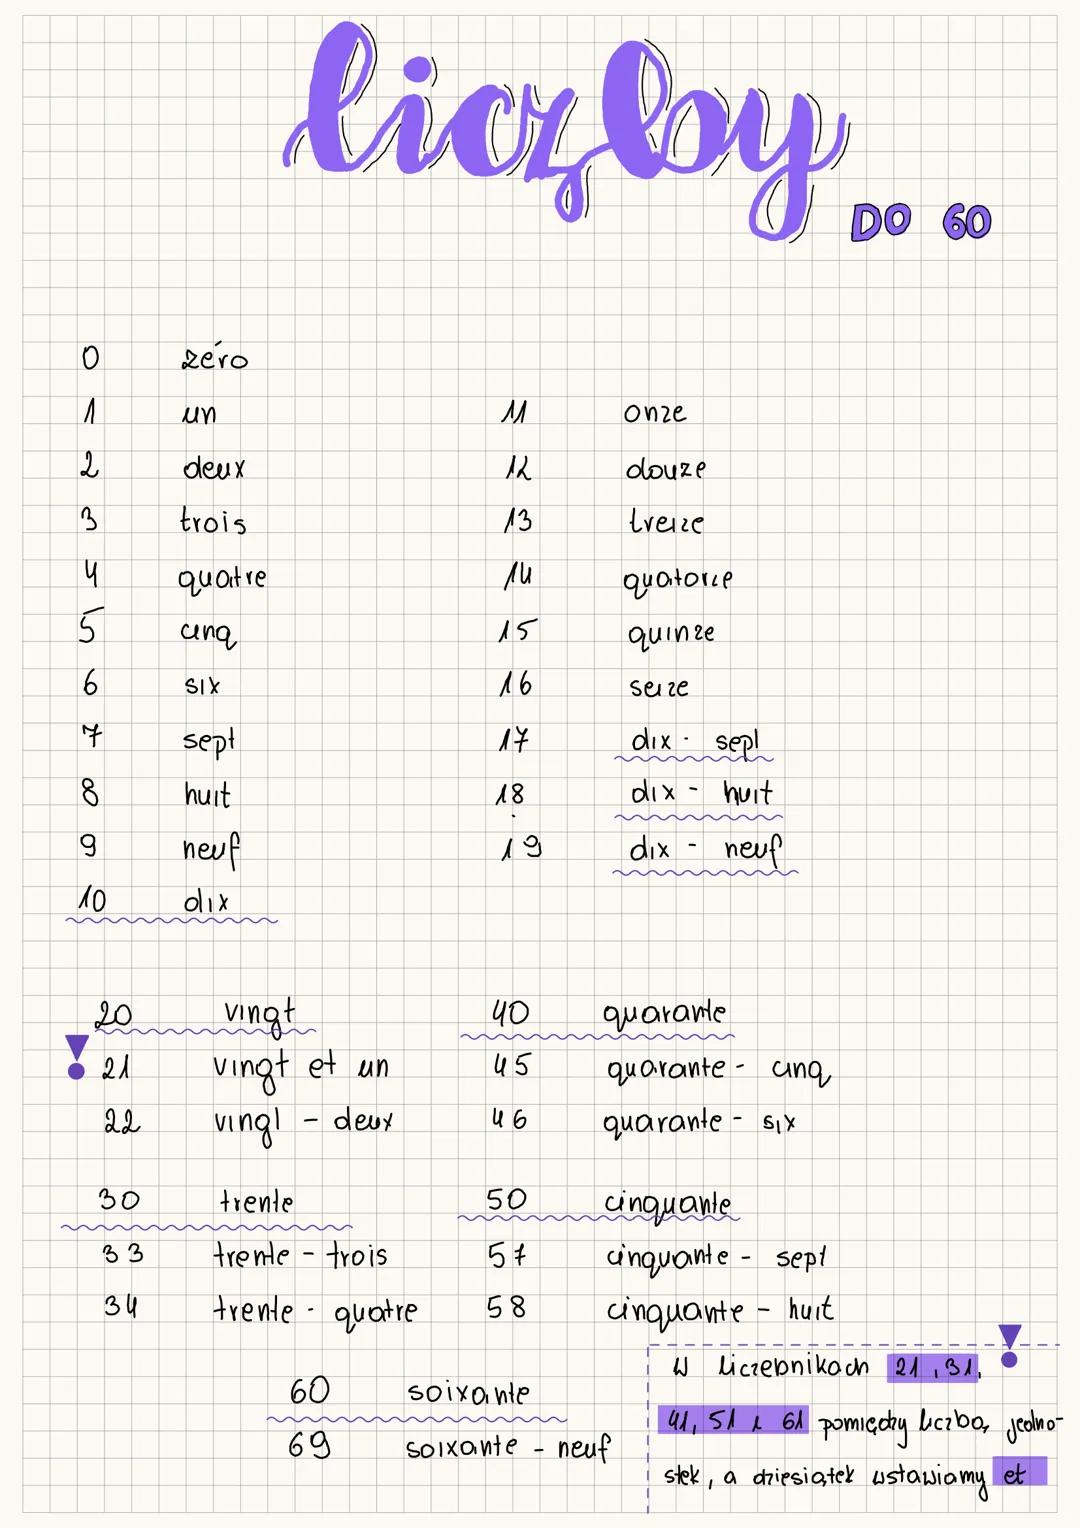 liczby
DO 60
0 zéro
1 un
11 onze
2 deux
12 douze
3 trois
13 treize
4 quatre
14 quatorze
5 cinq
15 quinze
6 six
16 seize
7 sept
17 dix - sept
8 huit
18 dix - huit
9 neuf
19 dix - neuf
10 dix
20 vingt
40 quarante
21 vingt et un
45 quarante - cinq
22 vingt - deux
46 quarante - six
30 trente
50 cinquante
33 trente - trois
57 cinquante - sept
34 trente - quatre
58 cinquante - huit
60 soixante
69 soixante - neuf
W liczebnikach 21, 31,
41, 51 i 61 pomiędzy liczbą jedno-
stek, a dziesiątek wstawiamy et